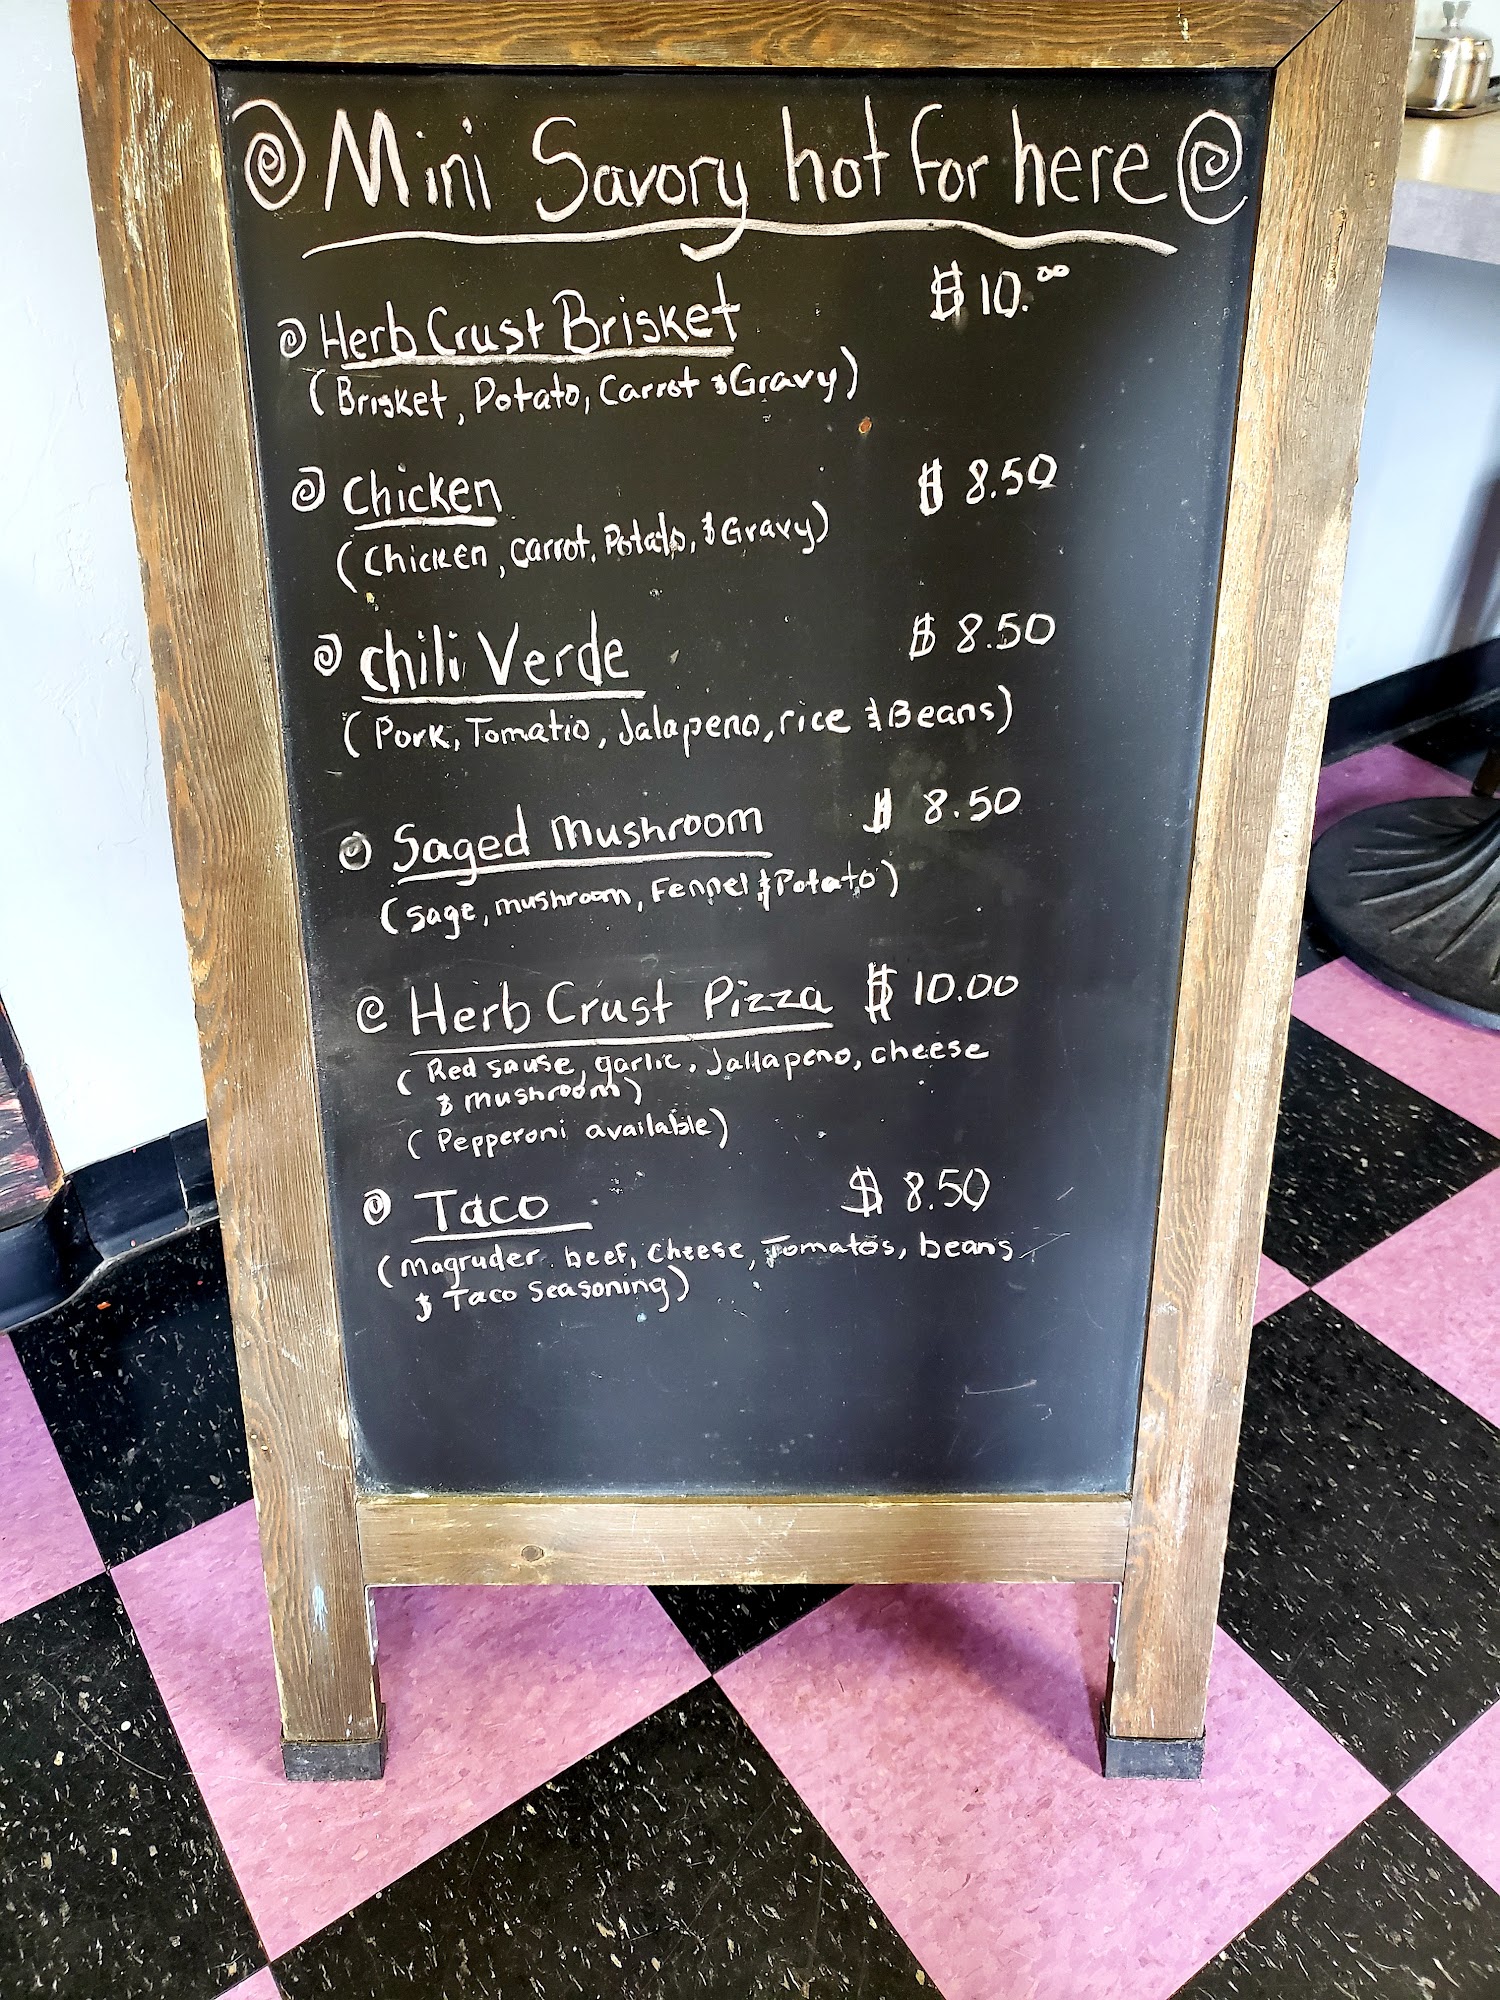 Mini Savory hot for here
Herb Crust Brisket $10.00
(Brisket, Potato, Carrot & Gravy)
Chicken $8.50
(Chicken, Carrot, Potato, & Gravy)
Chili Verde $8.50
(Pork, Tomatio, Jalapeno, rice & Beans)
Saged Mushroom $8.50
(Sage, mushroom, Fennel & Potato)
Herb Crust Pizza $10.00
(Red sause, garlic, Jallapeno, cheese
& mushroom)
(Pepperoni available)
Taco $8.50
(Magruder beef, Cheese, Tomatos, beans
& Taco Seasoning)